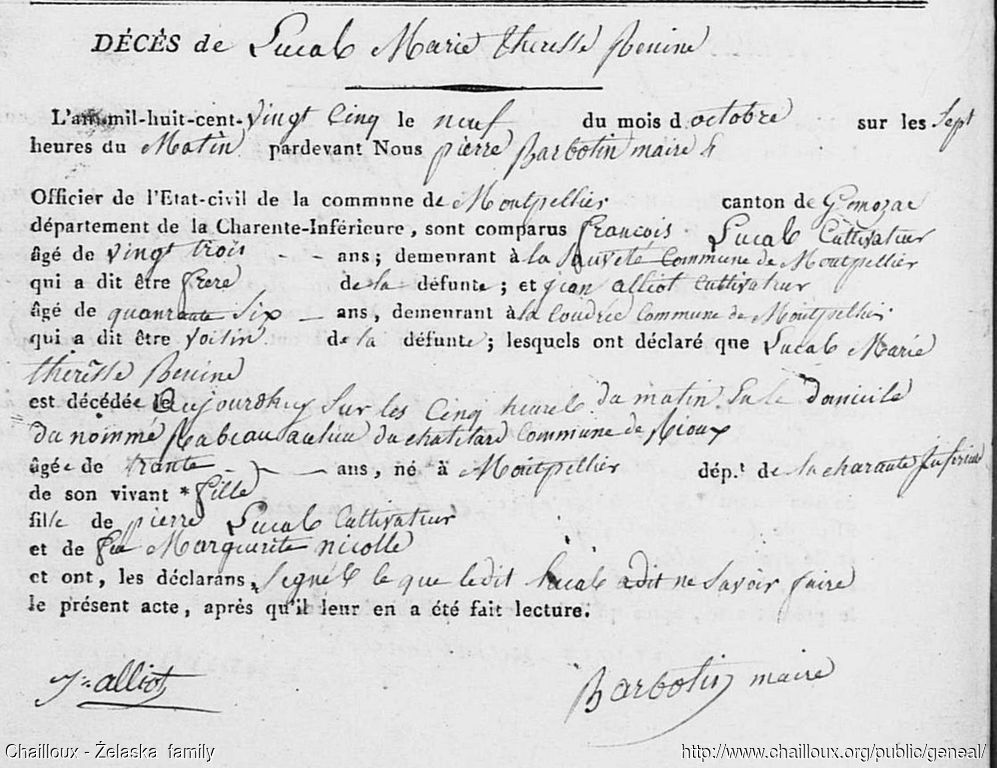 DÉCÈS de Lucas Marie theresse Benine
L'an mil-huit-cent-vingt Cinq le neuf du mois d'octobre sur les Sept
heures du Matin pardevant Nous pierre Barbotin maire &
Officier de l'Etat-civil de la commune de Montpellier canton de Gemozac
département de la Charente-Inférieure, sont comparus françois Lucas Cultivateur
âgé de vingt trois ans; demeurant à la Sauveté Commune de Montpellier
qui a dit être frere de la défunte; et jean alliot Cultivateur
âgé de quanrante Six ans, demeurant à la Coudrée Commune de Montpellier
qui a dit être voisin de la défunte; lesquels ont déclaré que Lucas Marie
theresse Benine
est décédée aujourdhuy Sur les Cinq heures du matin En le domicile
du nommé Rabeau au lieu du chatelard Commune de Rioux
âgée de trante ans, né à Montpellier dép.t de la charante Inferieure
de son vivant * fille
fille de pierre Lucas Cultivateur
et de feu Marguerite nicolle
et ont, les déclarans, Segnés le que ledit Lucas a dit ne Savoir faire
le présent acte, après qu'il leur en a été fait lecture.
J= alliot
Barbotin maire
Chailloux - Želaska family
http://www.chailloux.org/public/geneal/